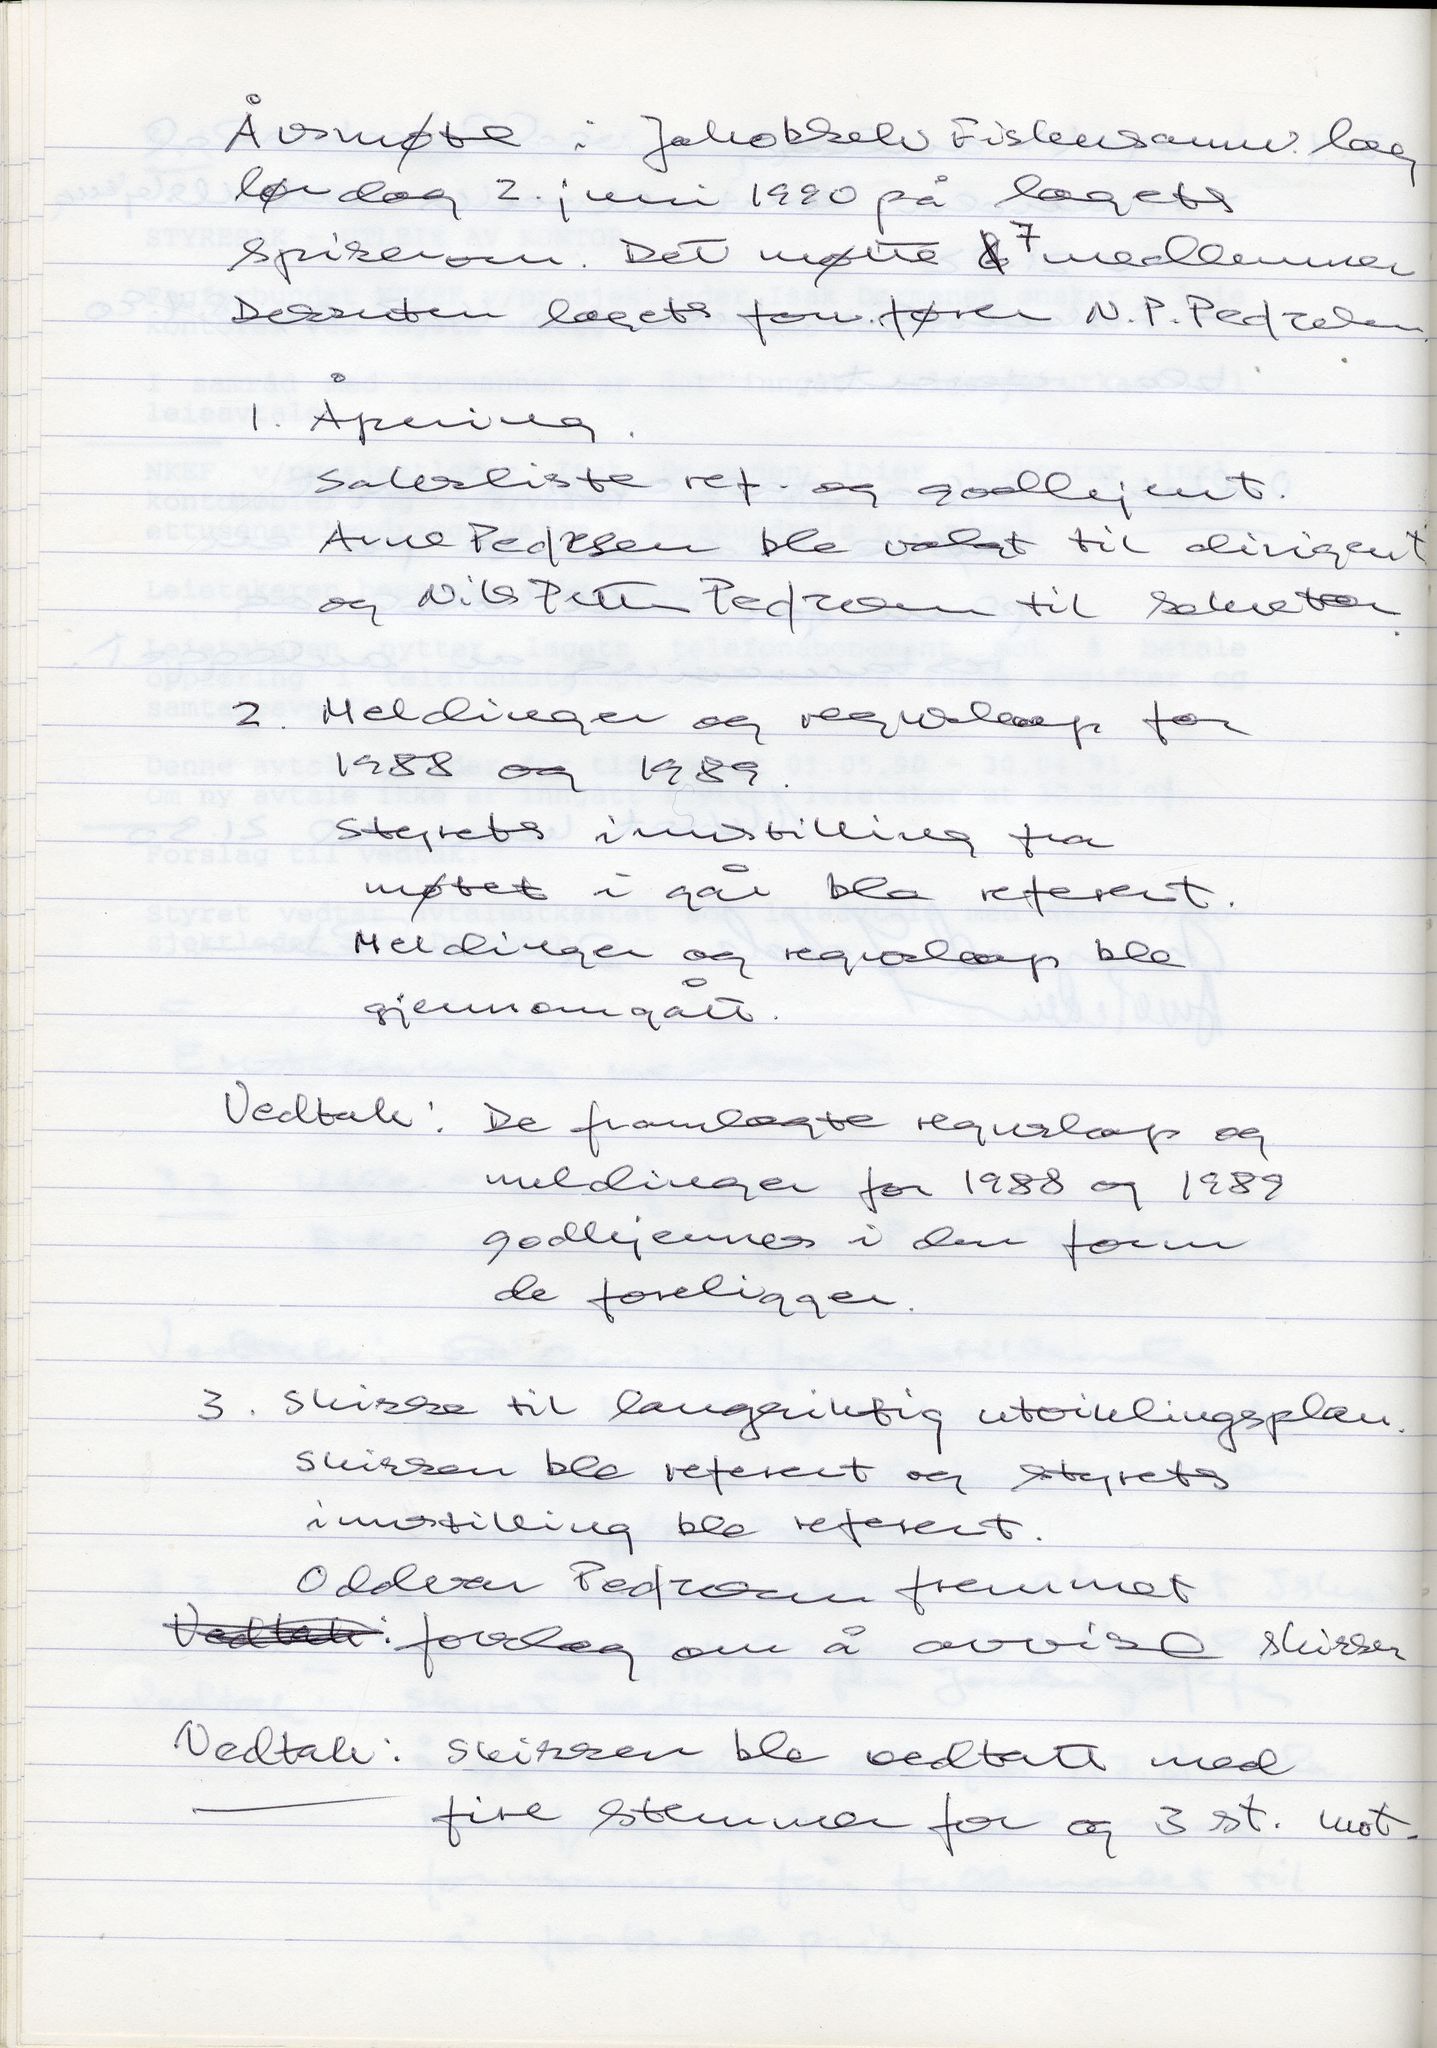 Årsmøte i Jakobselv Fiskersamv. lag
lørdag 2. juni 1990 på lagets
spiserom. Det møtte 7 medlemmer
Dessuten lagets forr.fører N.P. Pedersen.
1. Åpning.
Saksliste ref. og godkjent.
Arne Pedersen ble valgt til dirigent
og Nils Petter Pedersen til sekretær.
2. Meldinger og regnskap for
1988 og 1989.
Styrets innstilling fra
møtet i går ble referert.
Meldinger og regnskap ble
gjennomgått.
Vedtak: De framlagte regnskap og
meldinger for 1988 og 1989
godkjennes i den form
de foreligger.
3. Skisse til langsiktig utviklingsplan.
Skissen ble referert og styrets
innstilling ble referert.
Oddvar Pedersen fremmet
Vedtak: forslag om å avvise skissen
Vedtak: Skissen ble vedtatt med
fire stemmer for og 3 st. mot.